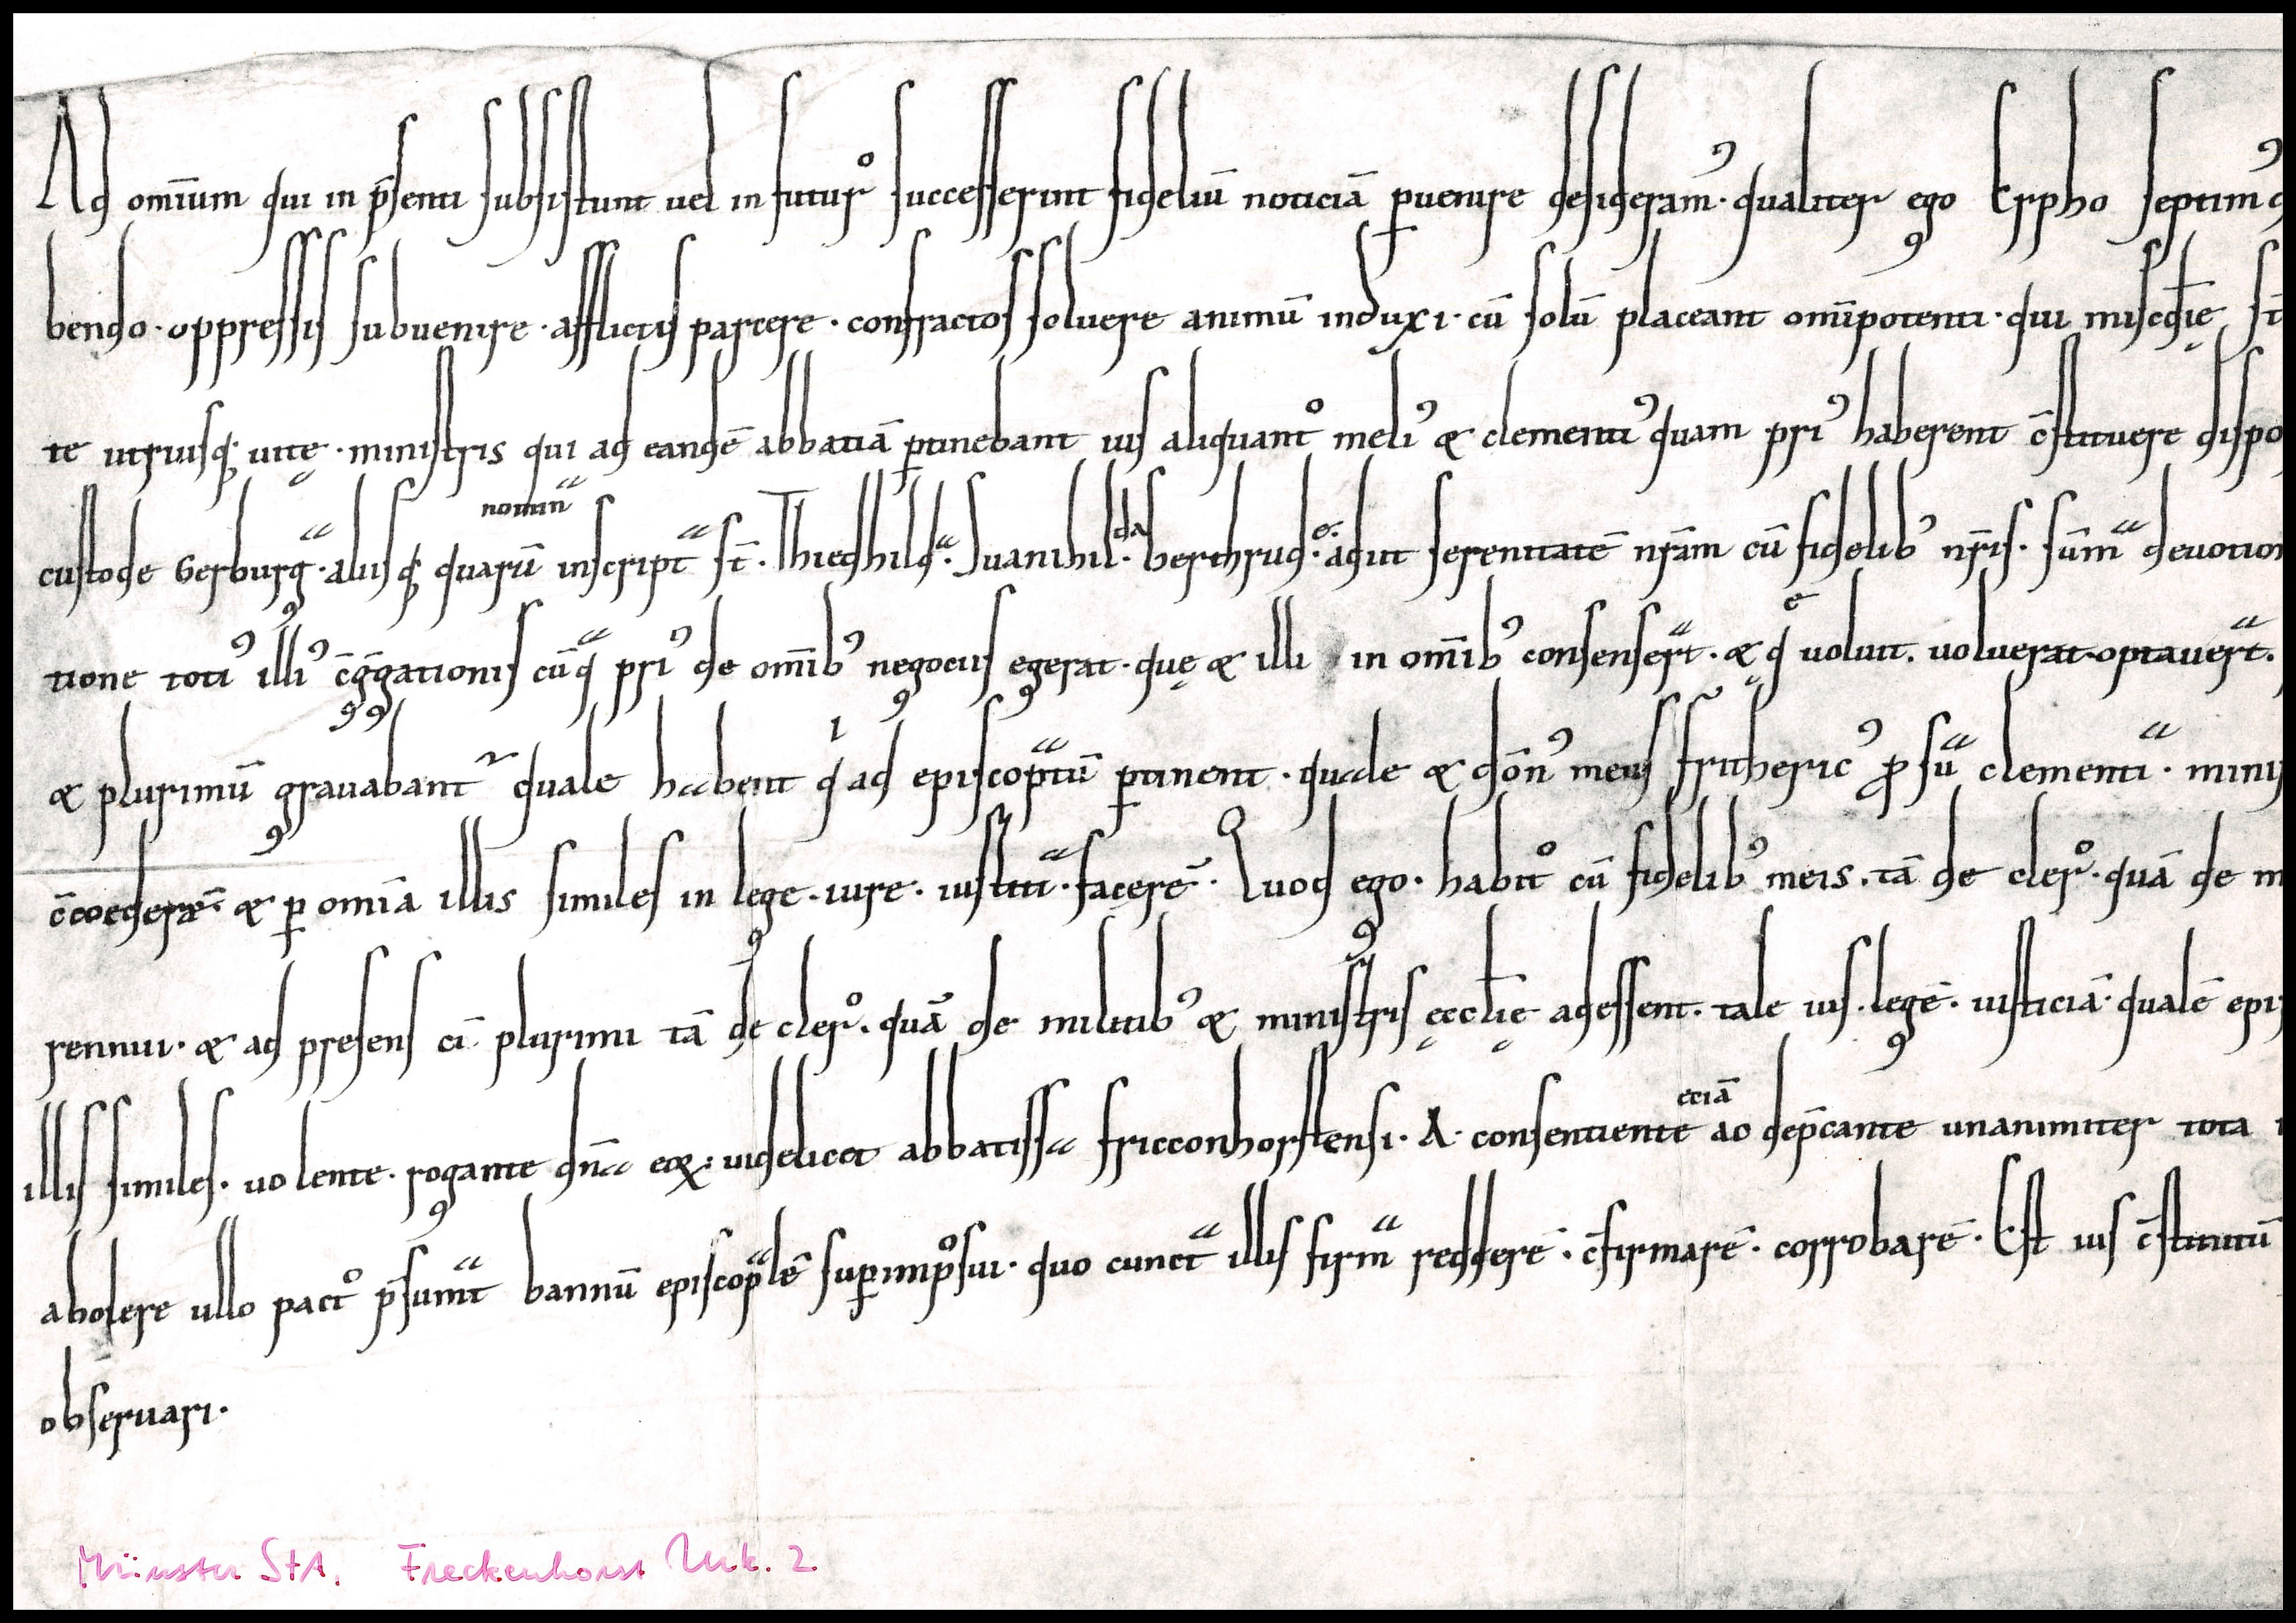 Ad om̄ium qui in p̄senti subsistunt uel in futurͦ successerint fideliū noticiā ꝑuenire desideramꝰ · qualiter ego Erpho septimꝰ
bendo · oppressis subuenire · afflictis parcere · confractos soluere animū induxi · cū solū placeant om̄ipotenti · qui mis̄c̄die st̄
te utriusq; uitę · ministris qui ad eandē abbatiā ꝑtinebant ius aliquantͦ meliꝰ & clementiꝰ quam priꝰ haberent c̄stituere dispo
custode Gerburgᵃ · aliisq; quarū nominᵃ inscriptᵃ st̄ · Thiedhildᵃ · Suanihilda · berthrudͤ · adiit serenitatē nr̄am cū fidelibꝰ nr̄is · sūmᵃ deuotion
tione totiꝰ illiꝰ c̄gḡationis cūqᵃ priꝰ de om̄ibꝰ negociis egerat · quę & illi in om̄ibꝰ consenserᵃt · & qͤ uoluit · uoluerat · optauerᵃt ·
& plurimū grauabantᷣ quale habent qͥ ad episcopᵃtū ꝑtinent · quale & dōnꝰ meus frithericꝰ ꝓ suᵃ clementiᵃ · minis
c̄cederē · & ꝑ om̄ia illis similes in lege · iure · iustitiᵃ · facerē · Quod ego · habitͦ cū fidelibꝰ meis · tā de clerͦ · quā de m
rennui · & ad presens cī plurimi tā de clerͦ · quā de militibꝰ & ministris ęcclię adessent · tale ius · legē · iusticiā · qualē epis
illis similes · uolente · rogante dn̄a eoꝝ · uidelicet abbatissa fricconhorstensi · A · consentiente eciā ac dep̄cante unanimiter tota
abolere ullo pactͦ p̄sumᵃt bannū episcopᵃlē suꝑimpͦsui · quo cunctᵃ illis firmᵃ redderē · c̄firmarē · corrobarē · Est ius c̄stitutū
obseruari ·
Münster StA. Freckenhorst Urk. 2